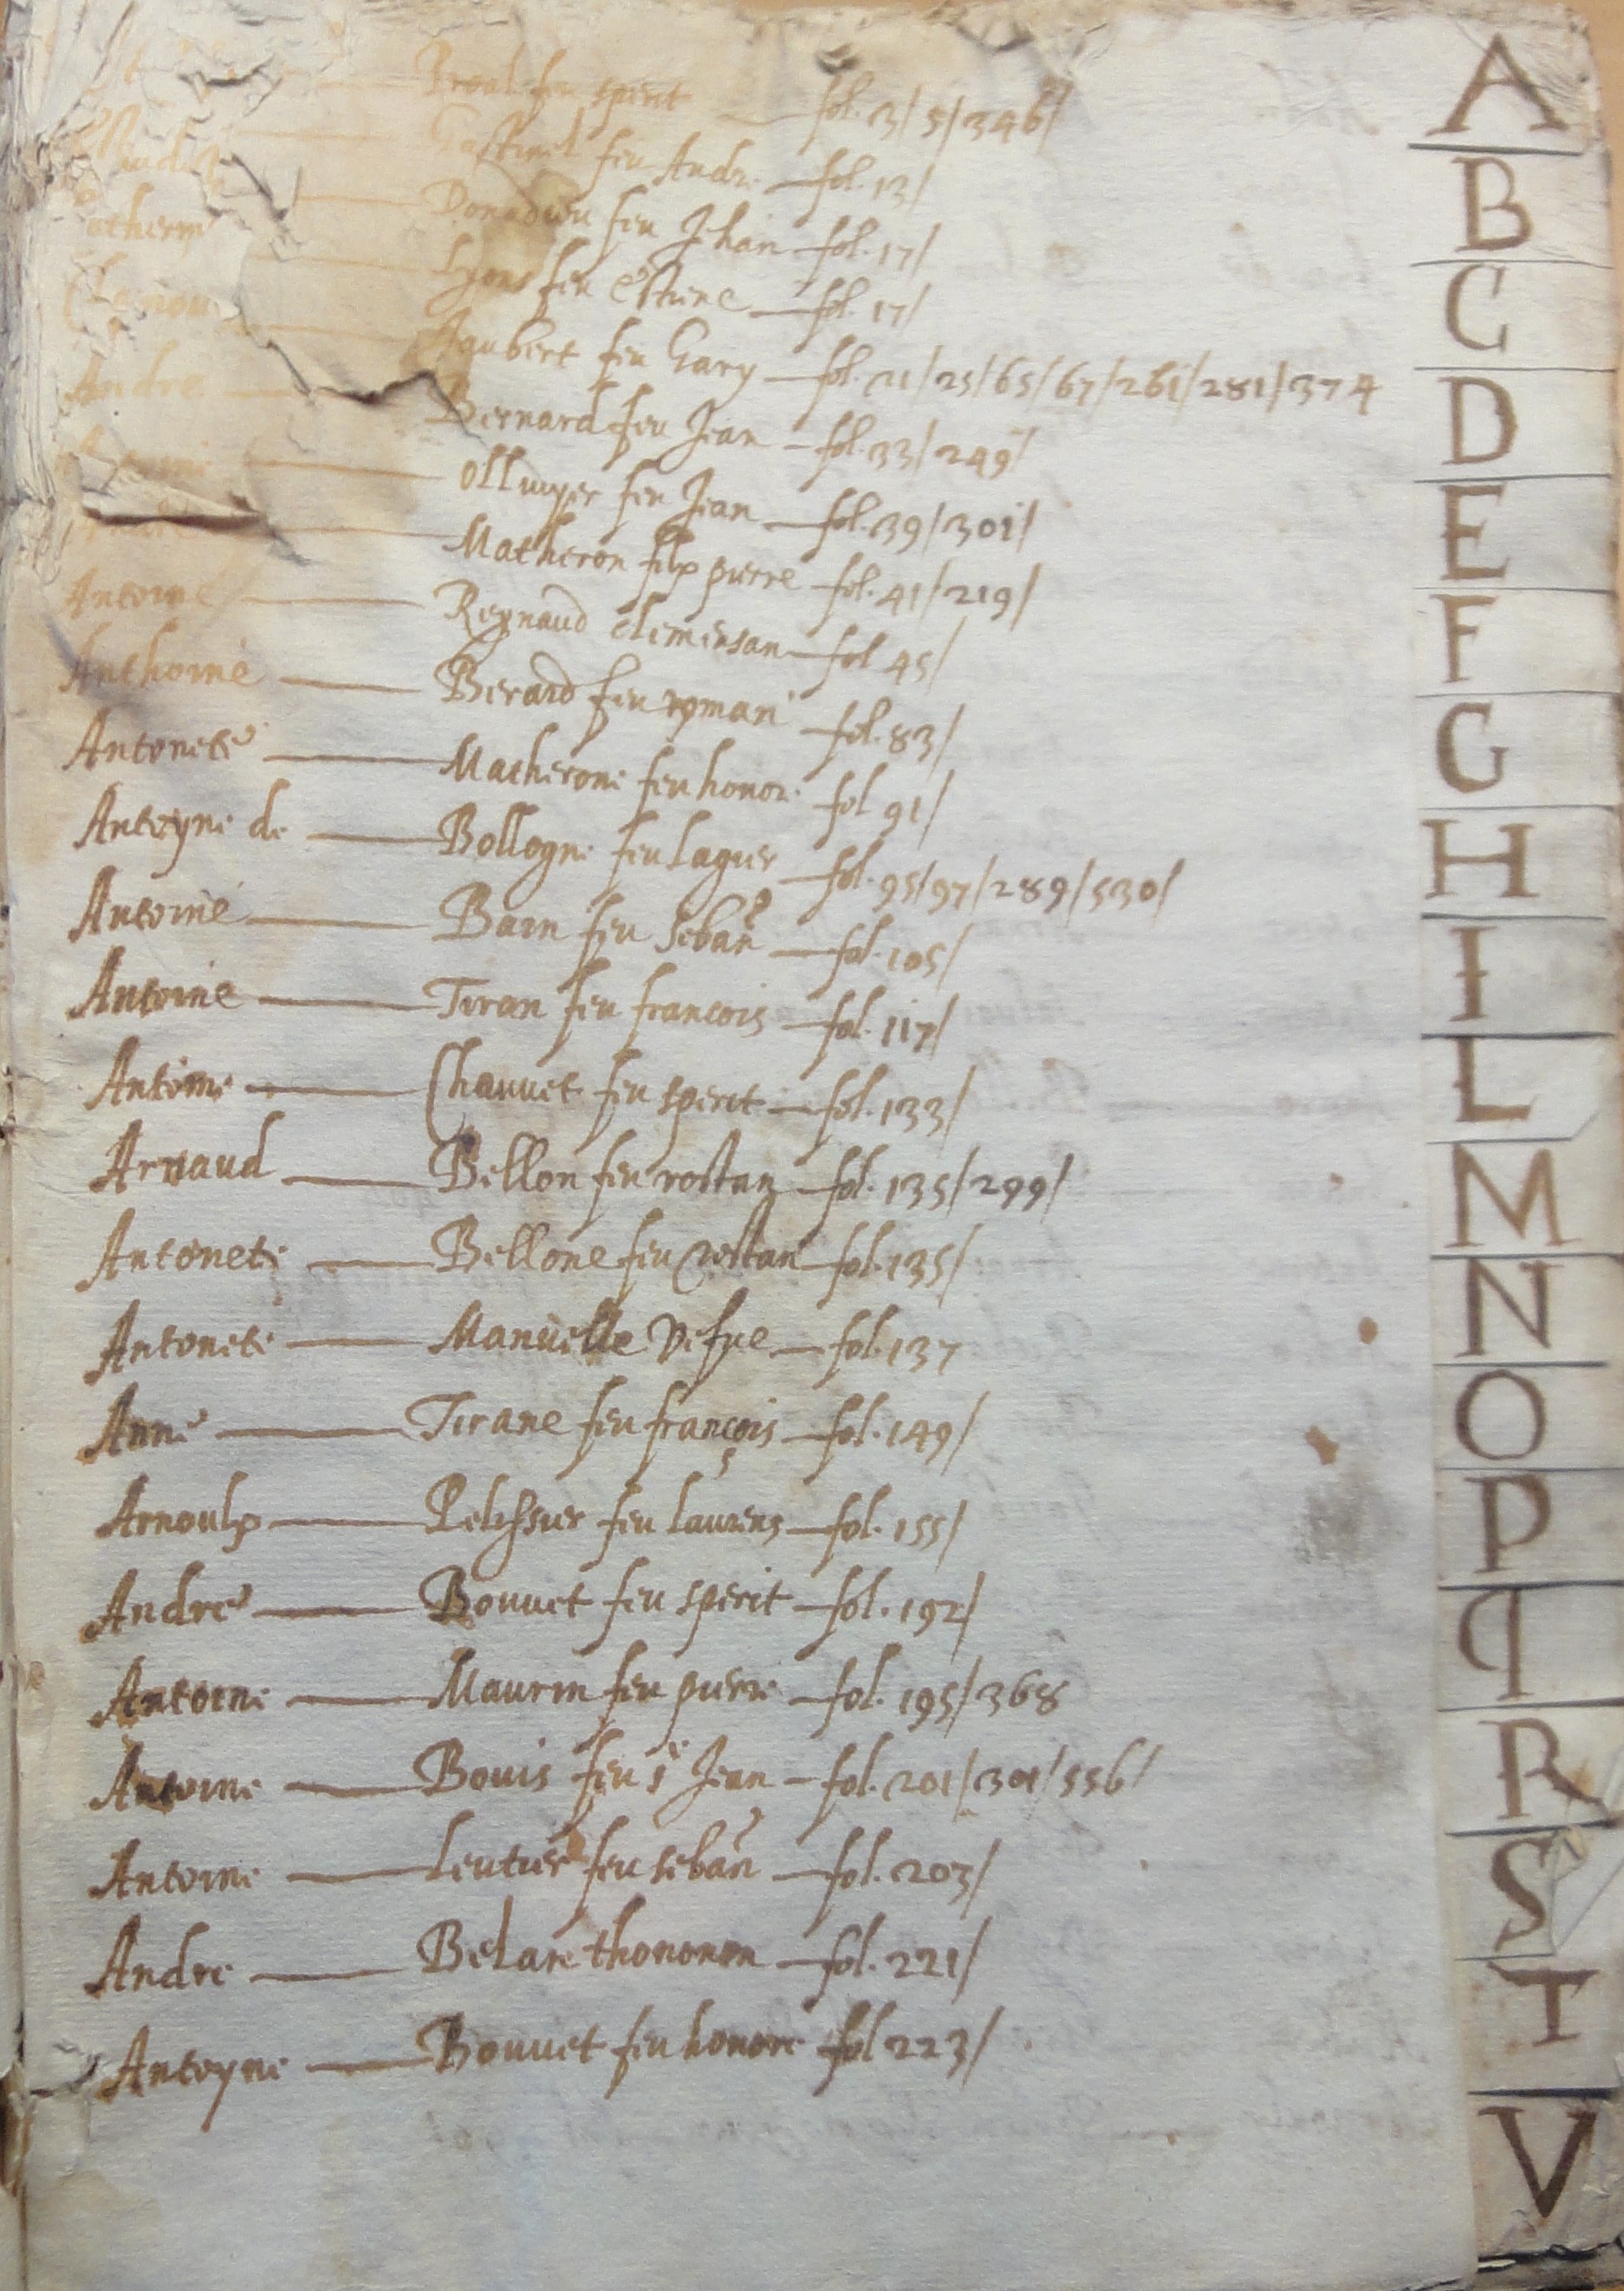 feu sperit — fol. 3/ 5/ 346/
feu Andre — fol. 13/
Donadieu feu Jhan — fol. 17/
Lyons feu estiene — fol. 17/
Aaubert feu Gary — fol. 21/25/65/67/261/281/374
Andre — Bernard feu Jean — fol. 33/ 249/
Ollivyer feu Jean — fol. 39/301/
Matheron filz pierre — fol. 41/219/
Antoine — Reynaud clemensan — fol 45/
Anthoine — Berard feu roman — fol. 83/
Antonete — Matherone feu honore fol 91/
Antoyne de — Bollogne feu Lagier — fol. 95/97/289/530/
Antoine — Barn feu seban — fol. 105/
Antoine — Tiran feu francois — fol. 117/
Antoine — Chauvet feu sperit — fol. 133/
Arnaud — Bellon feu rostan — fol. 135/299/
Antonete — Bellone feu rostan fol. 135/
Antonete — Manuelle vefve — fol. 137
Anne — Tirane feu françois — fol. 149/
Arnoulx — Pelissier feu Laurens — fol. 155/
Andre — Bouvet feu sperit — fol. 192/
Antoine — Maurin feu pierre — fol. 195/368
Antoine — Bouis feu s Jean — fol. 201/301/556/
Antoine — Leutier feu seban — fol. 203/
Andre — fol. 221/
Antoyne — Bouvet feu honore fol 223/
A
B
C
D
E
F
G
H
I
L
M
N
O
P
q
R
S
T
V